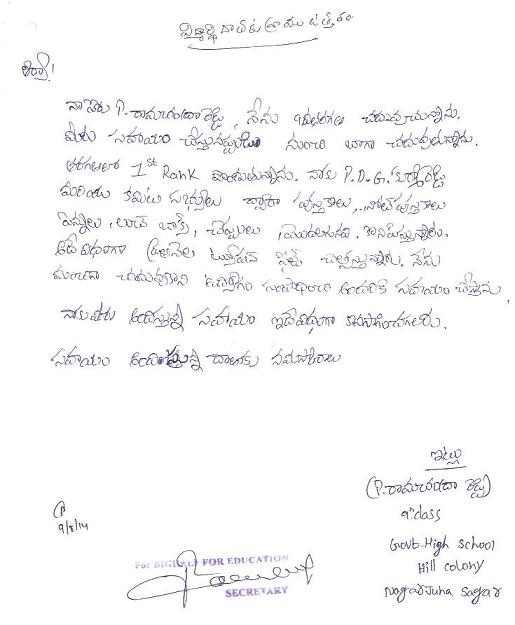 విద్యార్థి దాతకు వ్రాయు ఉత్తరం
అయ్యా!
నా పేరు P. రామచంద్రా రెడ్డి, నేను 9వతరగతి చదువుచున్నాను.
మీరు సహాయం చేస్తున్నప్పటి నుంచి బాగా చదువుతున్నాను.
తరగతిలో 1st Rank పొందుతున్నాను. నాకు P.D.G.
మరియు కమిటి సభ్యులు ద్వారా పుస్తకాలు, నోట్ పుస్తకాలు
పెన్నులు, బాక్స్, చెప్పులు, మొదలగునవి కొనిస్తున్నారు.
అదే విధంగా ప్రతినెల ట్యూషన్ ఫీజు చెల్లిస్తున్నారు. నేను
బాగా చదువుకొని ఉద్యోగం సంపాదించి అందరికి సహాయం చేస్తాను
నాకు మీరు అందిస్తున్న సహాయం ఇదేవిధంగా కొనసాగించగలరు.
సహాయం అందిస్తున్న దాతకు నమస్కారాలు
ఇట్లు
(P. రామచంద్రా రెడ్డి)
9th class
Govt. High School
Hill colony
Nagarjuna Sagar
9/8/14
FOR EDUCATION
SECRETARY